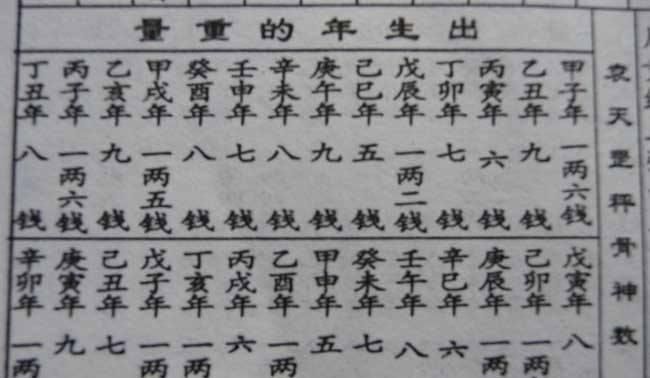 袁天罡秤骨神数
出生年的重量
甲子年一两六钱
乙丑年九钱
丙寅年六钱
丁卯年七钱
戊辰年一两二钱
己巳年五钱
庚午年九钱
辛未年八钱
壬申年七钱
癸酉年八钱
甲戌年一两五钱
乙亥年九钱
丙子年一两六钱
丁丑年八钱
戊寅年八
己卯年一两
庚辰年一两
辛巳年六
壬午年八
癸未年七
甲申年五
乙酉年一两
丙戌年六
丁亥年一两
戊子年一两
己丑年七
庚寅年九
辛卯年一两